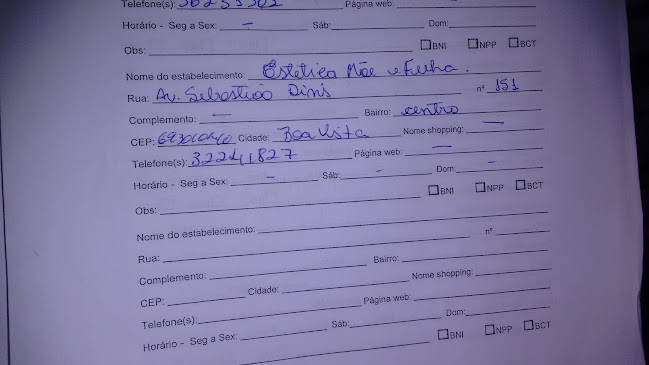 Telefone(s): 36235502 Página web:
Horário - Seg a Sex: — Sáb: Dom:
Obs: BNI NPP BCT
Nome do estabelecimento: Estetica Mãe e Filha.
Rua: Av. Sebastião Dinis nº 151
Complemento: — Bairro: centro
CEP: Cidade: Boa Vista Nome shopping: —
Telefone(s): 32241827 Página web: —
Horário - Seg a Sex: — Sáb: — Dom: —
Obs: BNI NPP BCT
Nome do estabelecimento:
Rua: nº
Complemento: Bairro:
CEP: Cidade: Nome shopping:
Telefone(s): Página web:
Horário - Seg a Sex: Sáb: Dom:
BNI NPP BCT